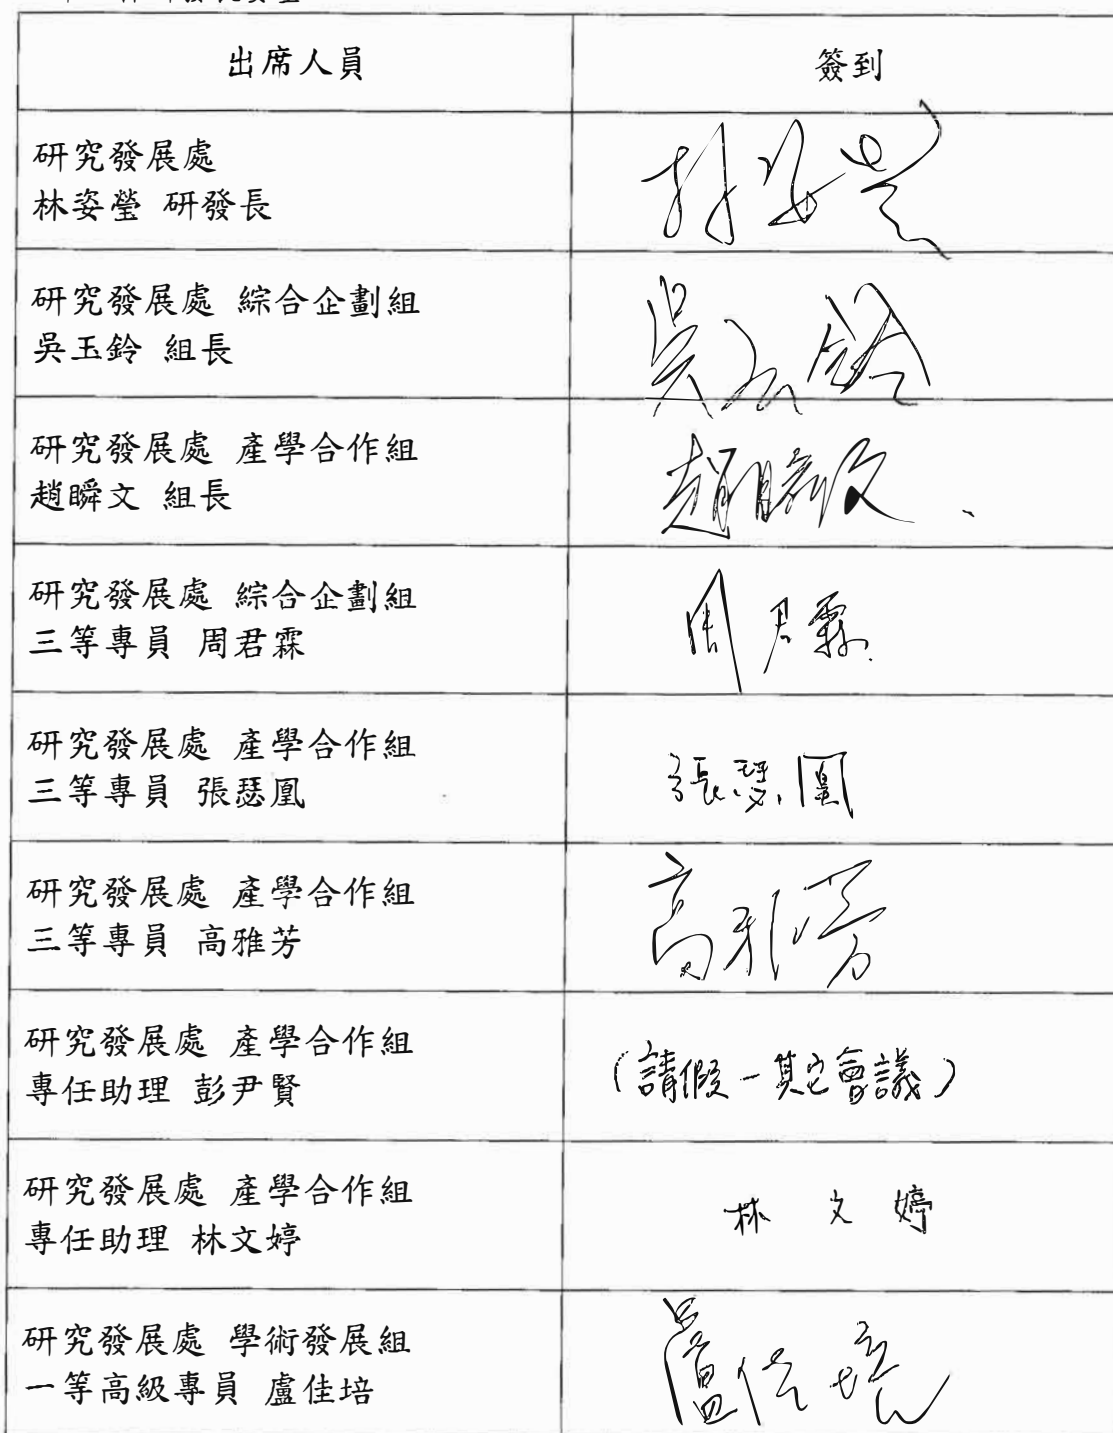 出席人員
簽到
研究發展處
林姿瑩 研發長
林姿瑩
研究發展處 綜合企劃組
吳玉鈴 組長
吳玉鈴
研究發展處 產學合作組
趙瞬文 組長
趙瞬文
研究發展處 綜合企劃組
三等專員 周君霖
周君霖
研究發展處 產學合作組
三等專員 張瑟凰
張瑟凰
研究發展處 產學合作組
三等專員 高雅芳
高雅芳
研究發展處 產學合作組
專任助理 彭尹賢
(請假-其它會議)
研究發展處 產學合作組
專任助理 林文婷
林文婷
研究發展處 學術發展組
一等高級專員 盧佳培
盧佳培